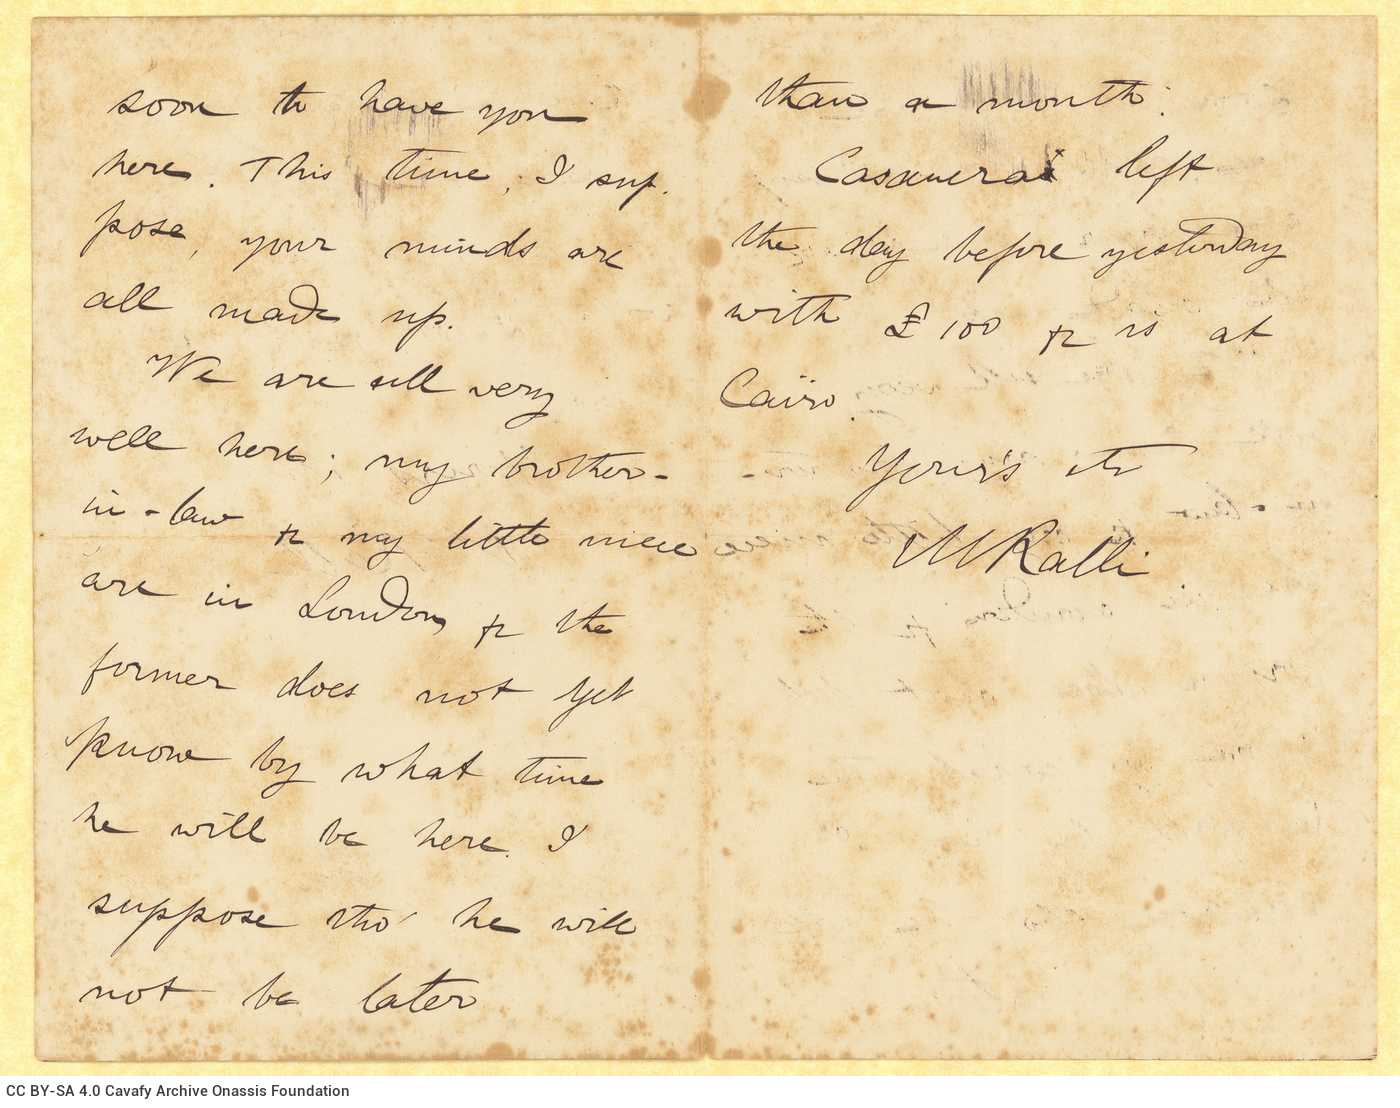 soon to have you
here. This time, I sup-
pose, your minds are
all made up.
We are all very
well here; my brother-
in-law & my little niece
are in London, & the
former does not yet
know by what time
he will be here. I
suppose tho' he will
not be later
than a month.
left
the day before yesterday
with £100 & is at
Caïro.
Your's etc
MRalli
CC BY-SA 4.0 Cavafy Archive Onassis Foundation